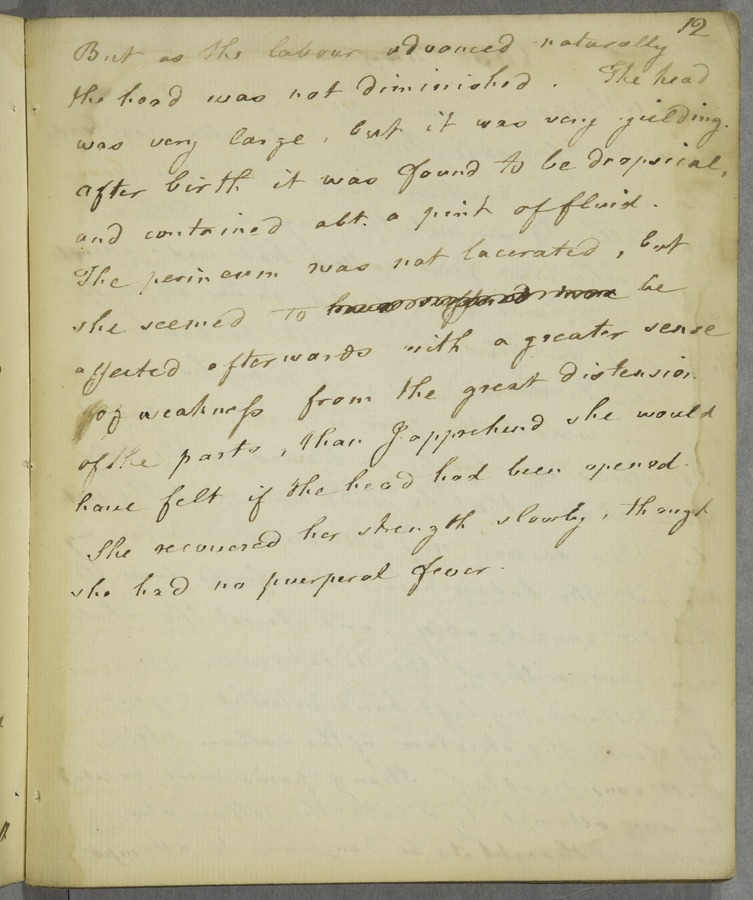 12
But as the labour advanced naturally
the head was not diminished. The head
was very large, but it was very yielding.
after birth it was found to be dropsical,
and contained abt. a pint of fluid.
The perineum was not lacerated, but
she seemed to have suffered more be
affected afterwards with a greater sense
of weakness from the great distension
of the parts, than I apprehend she would
have felt if the head had been opened.
She recovered her strength slowly, though
she had no puerperal fever.